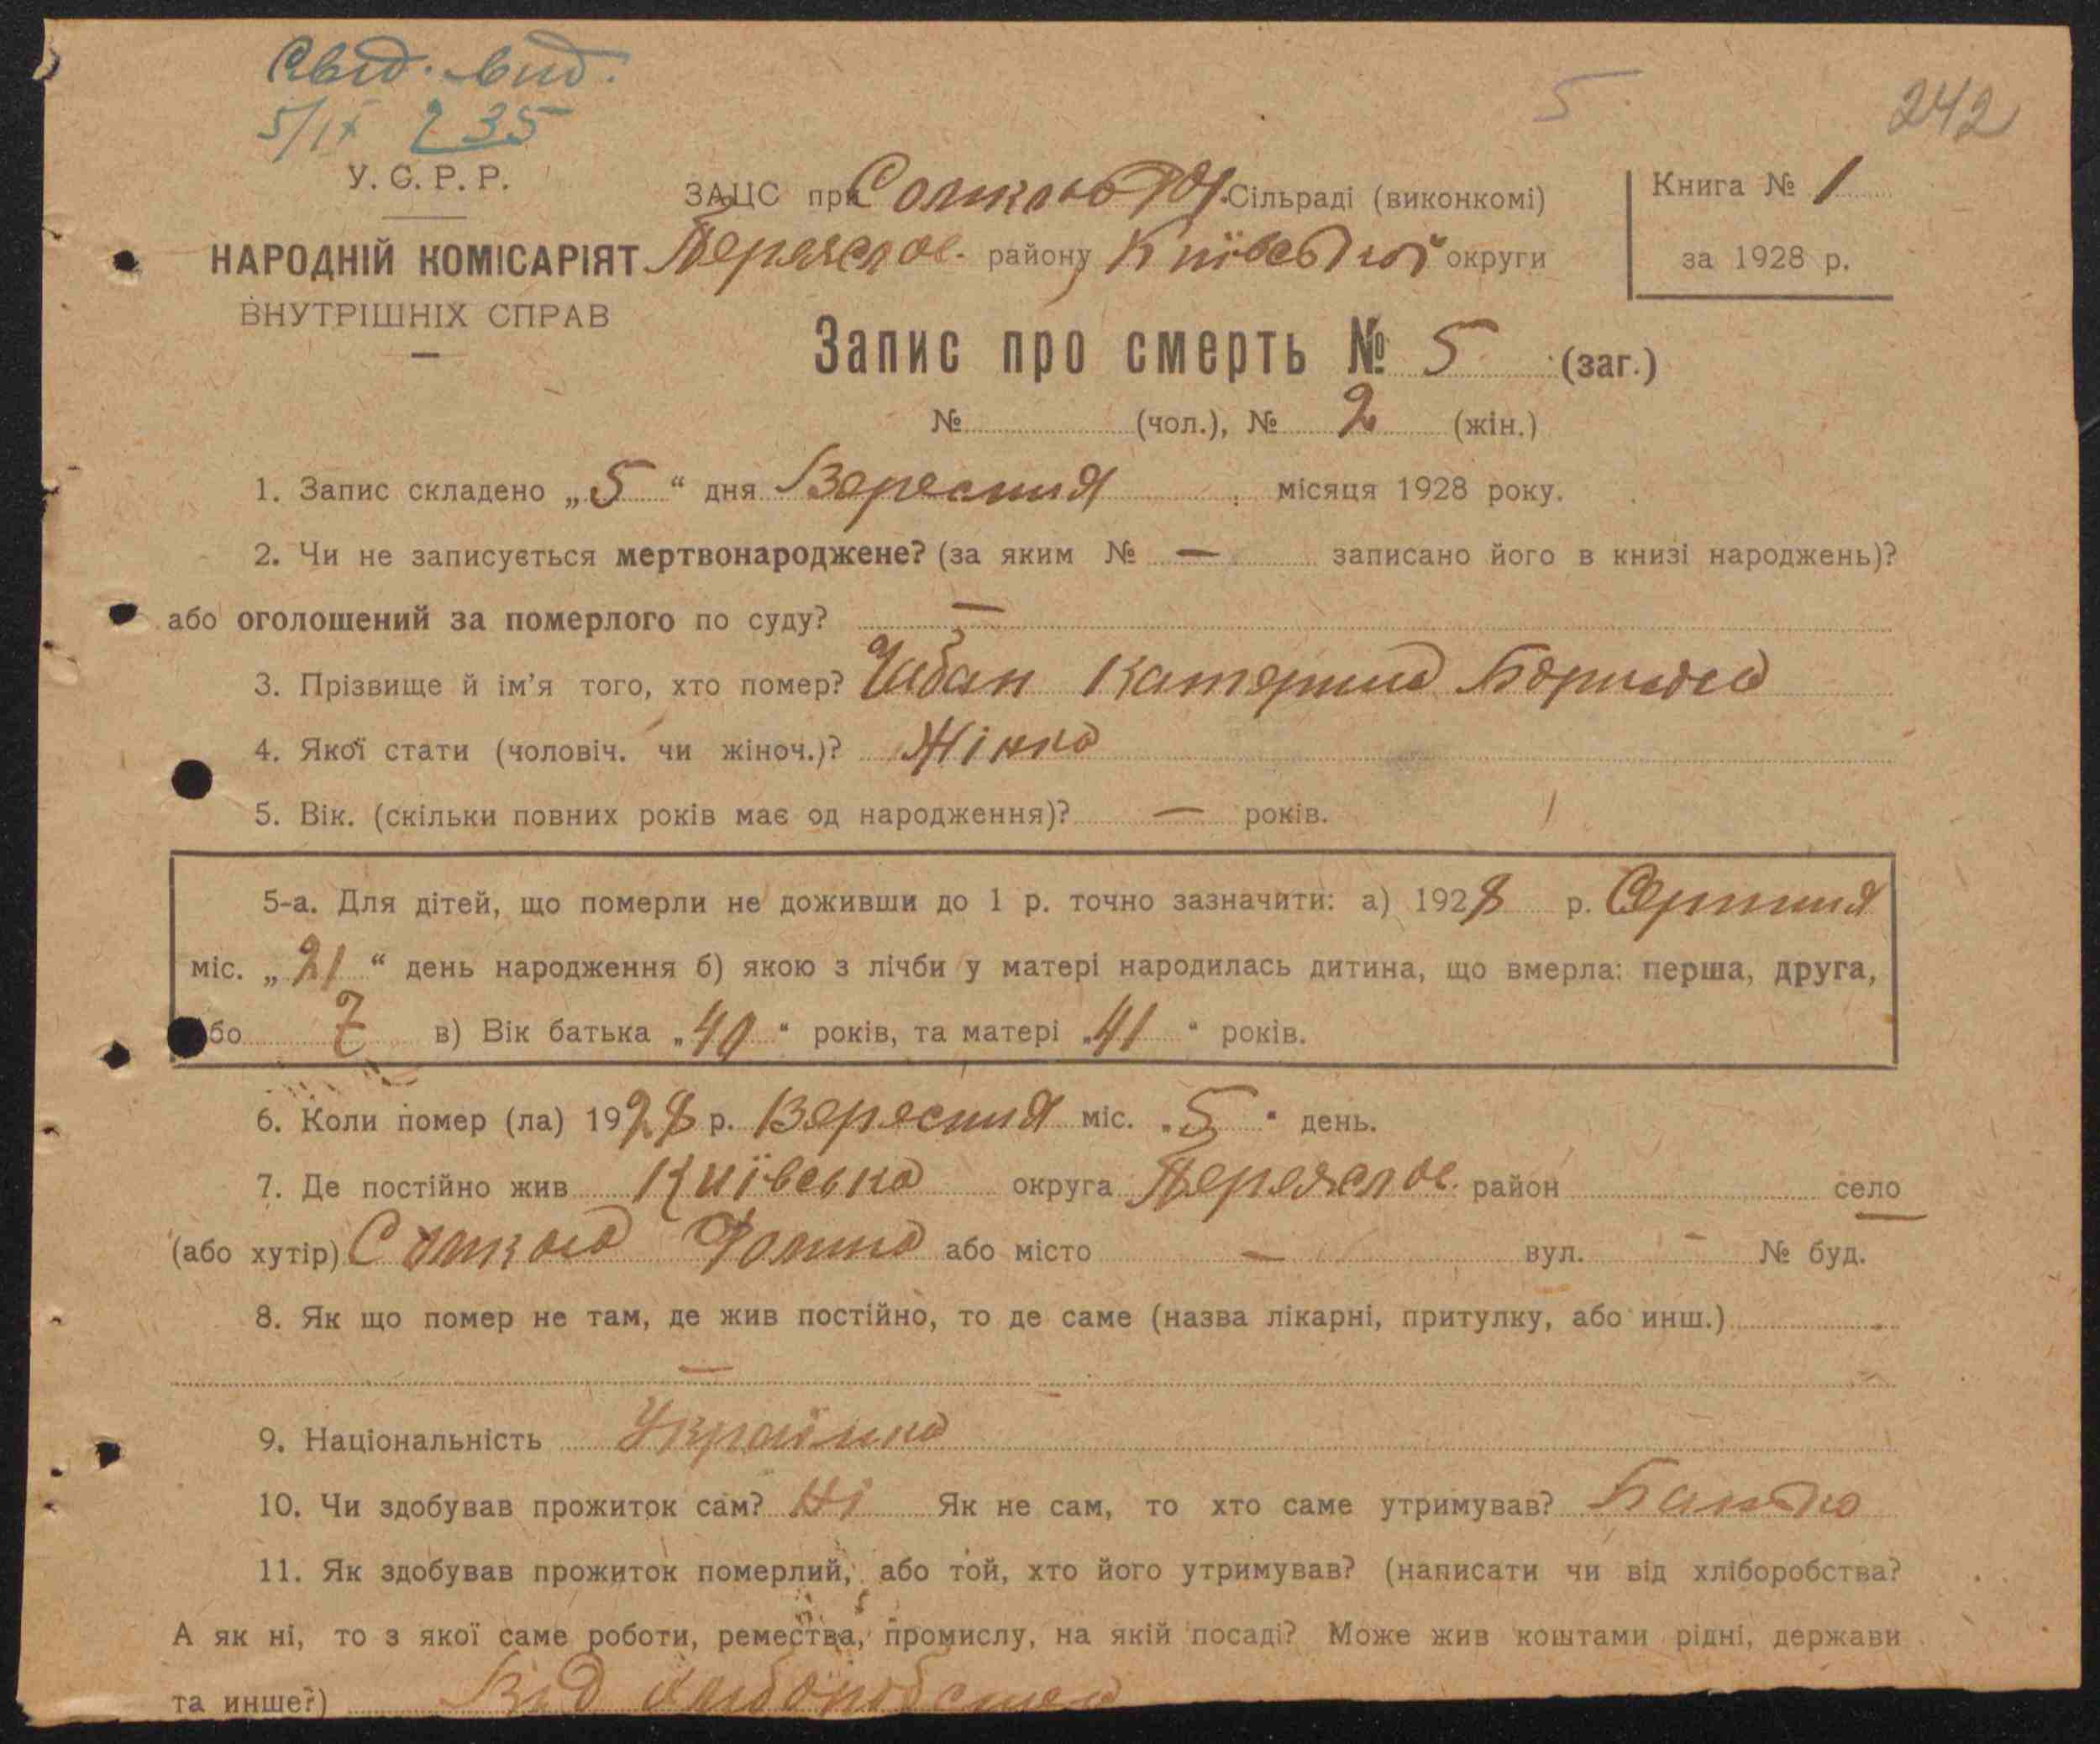 Свід. вид.
5/IX 235
5
242
У. С. Р. Р.
НАРОДНІЙ КОМІСАРІЯТ
ВНУТРІШНІХ СПРАВ
ЗАЦС при Сільраді (виконкомі)
Переяслов. району Київської округи
Книга № 1
за 1928 р.
Запис про смерть № 5 (заг.)
№ (чол.), № 2 (жін.)
1. Запис складено „5“ дня Вересния місяця 1928 року.
2. Чи не записується мертвонароджене? (за яким № — записано його в книзі народжень)?
або оголошений за померлого по суду? —
3. Прізвище й ім'я того, хто помер? Катерина
4. Якої стати (чоловіч. чи жіноч.)? Жінка
5. Вік. (скільки повних років має од народження)? — років.
5-а. Для дітей, що померли не доживши до 1 р. точно зазначити: а) 1928 р. Серпния
міс. „21“ день народження б) якою з лічби у матері народилась дитина, що вмерла: перша, друга,
або 7 в) Вік батька „40“ років, та матері „41“ років.
6. Коли помер (ла) 1928 р. Вересния міс. „5“ день.
7. Де постійно жив Київська округа Переяслов. район село
(або хутір) або місто — вул. - № буд.
8. Як що помер не там, де жив постійно, то де саме (назва лікарні, притулку, або инш.)
—
9. Національність Українка
10. Чи здобував прожиток сам? Ні Як не сам, то хто саме утримував? Батько
11. Як здобував прожиток померлий, або той, хто його утримував? (написати чи від хліборобства?
А як ні, то з якої саме роботи, ремества, промислу, на якій посаді? Може жив коштами рідні, держави
та инше?) Від хліборобства